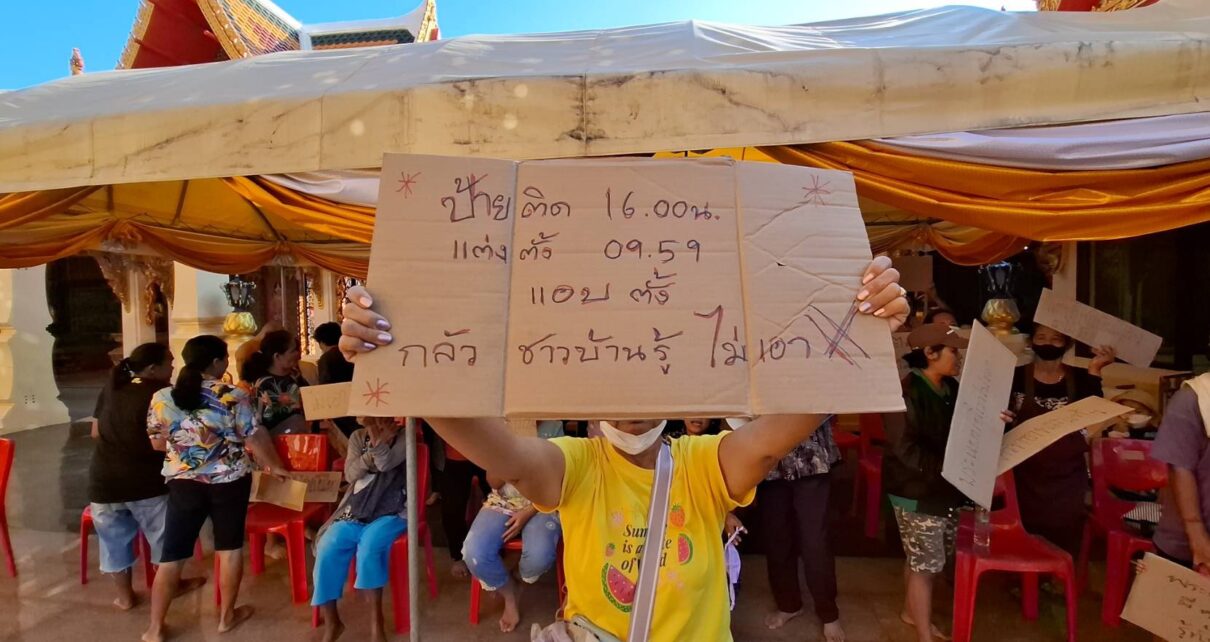 ป้ายติด 16.00น.
แต่งตั้ง 09.59
แอบ ตั้ง
กลัว ชาวบ้านรู้ ไม่เอา
Sum
is a
of